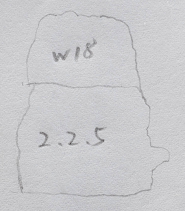 W18
2.2.5